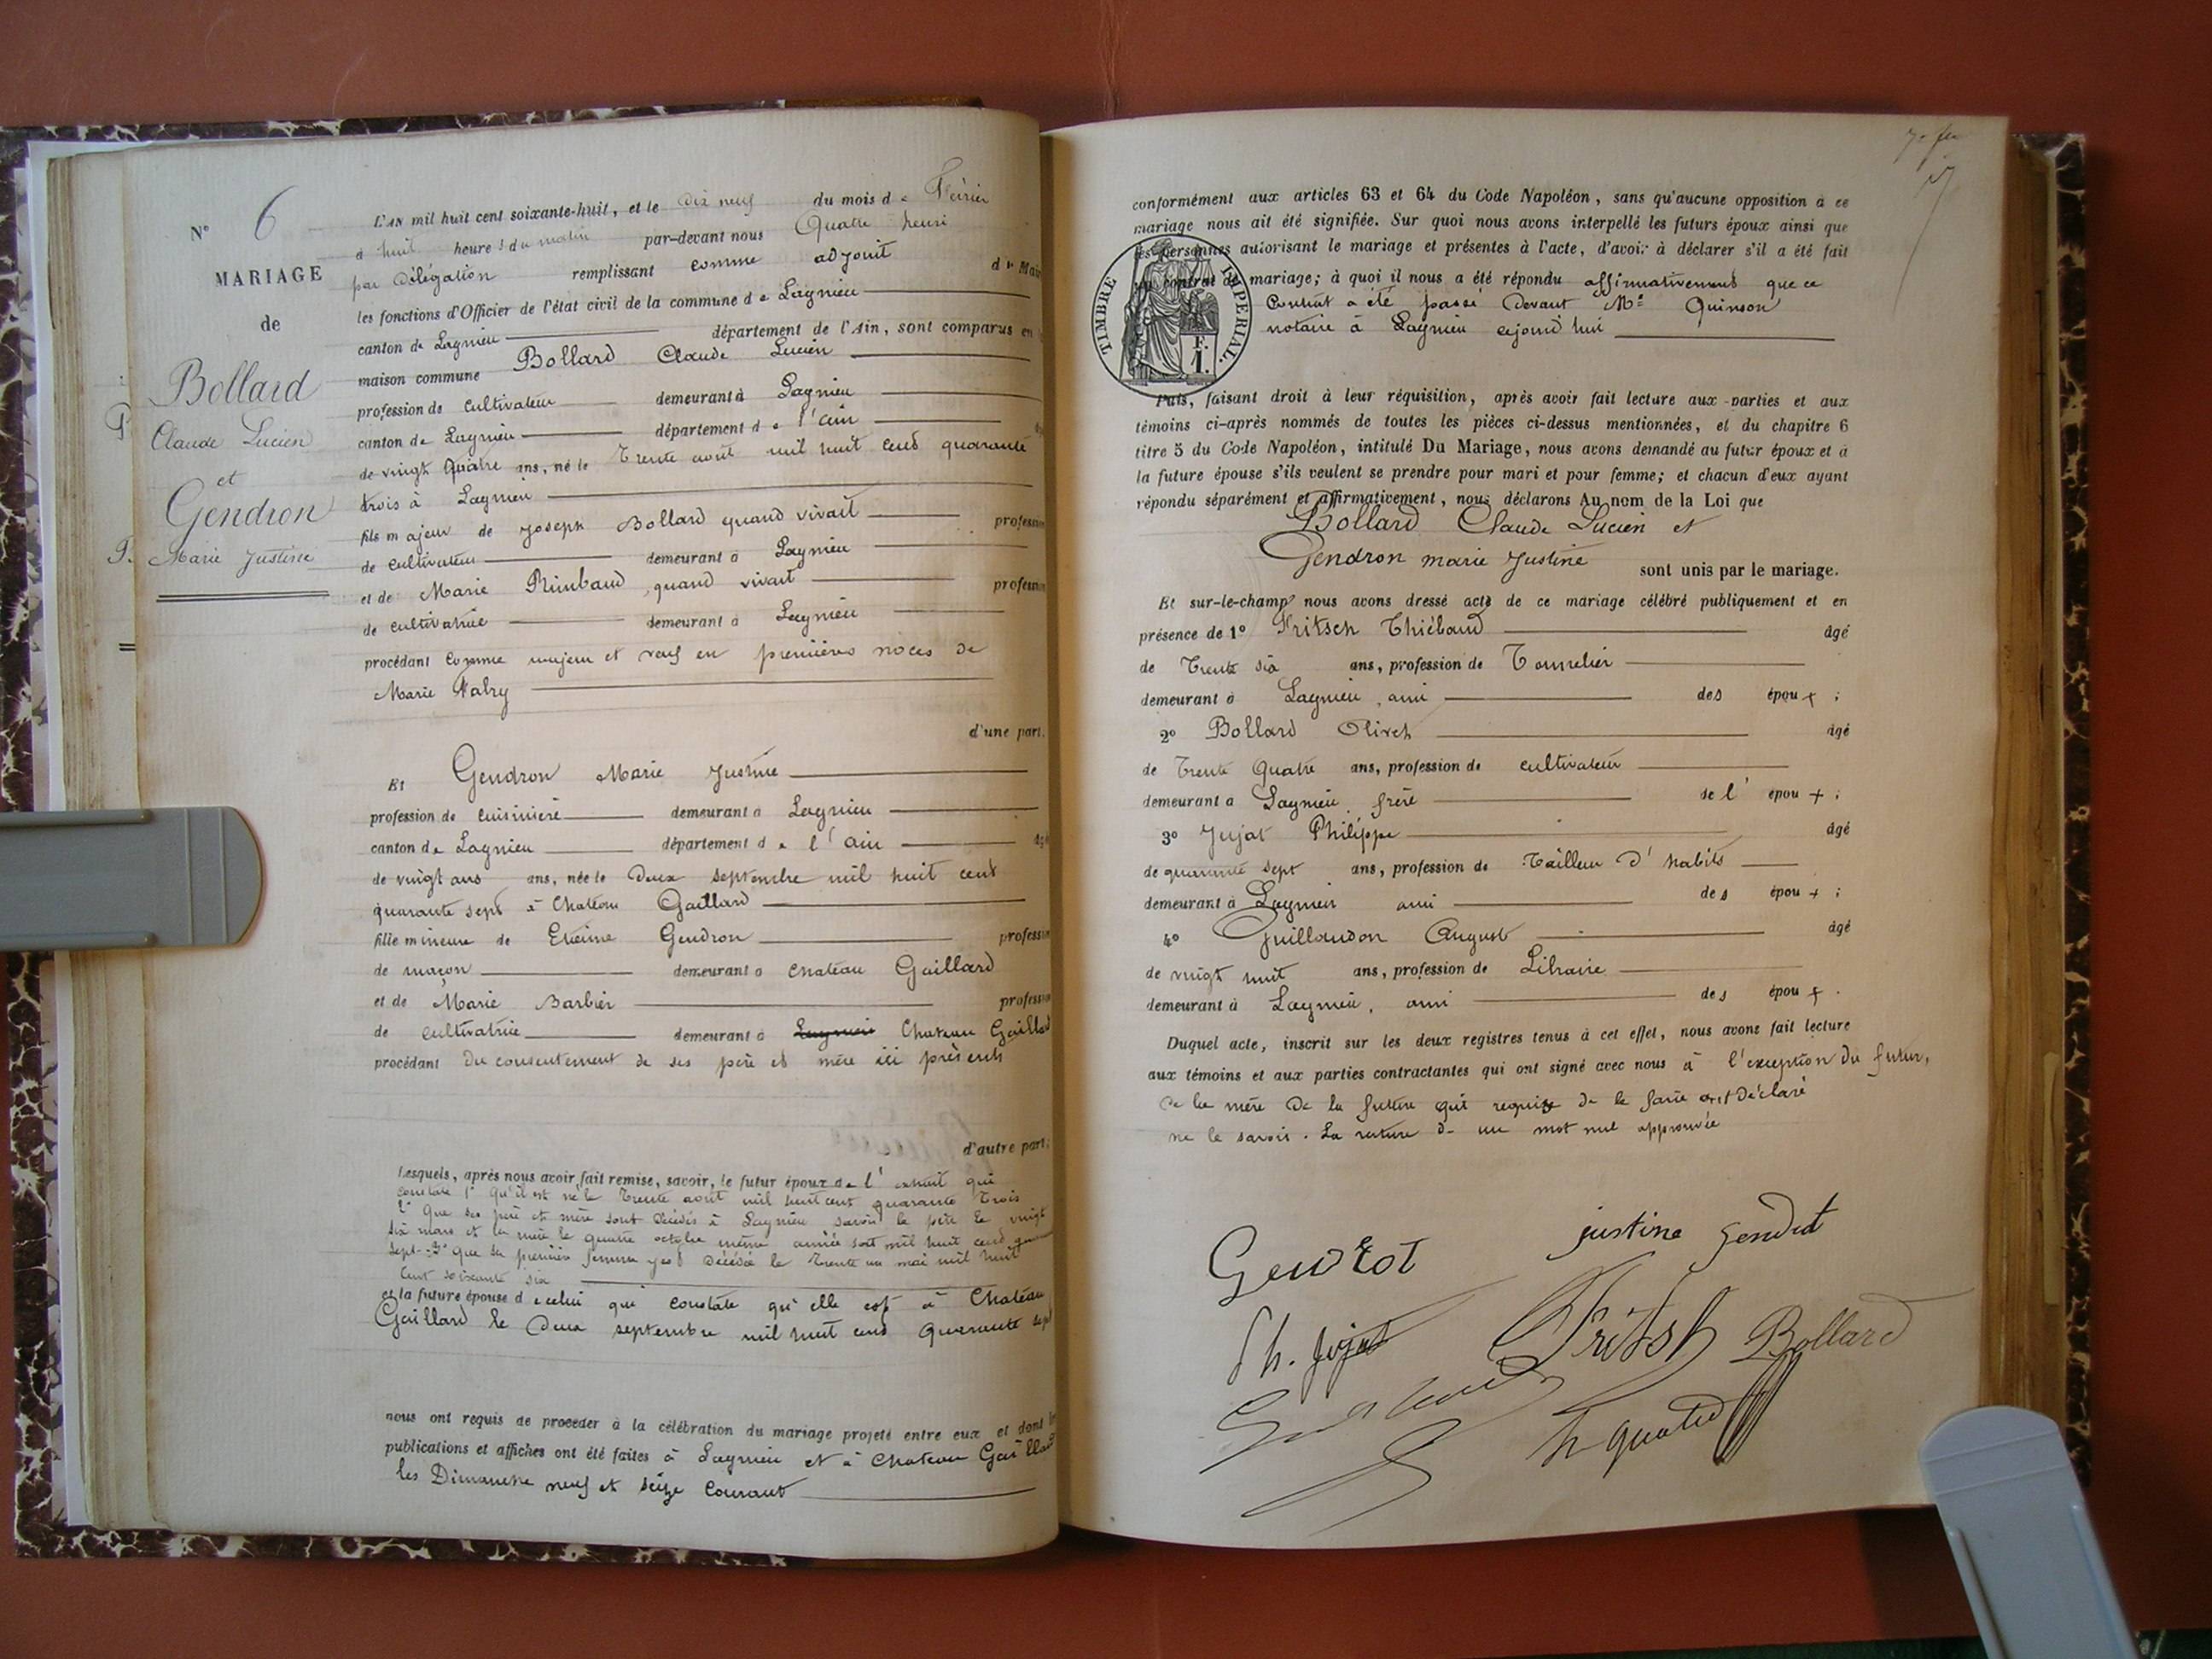 N° 6
MARIAGE
de
Bollard
Claude Lucien
et
Gendron
Marie Justine
L'AN mil huit cent soixante-huit, et le dix neuf du mois de Février
à huit heures du matin par-devant nous Quatre henri
par Délégation remplissant comme adjoint du Mai
les fonctions d'Officier de l'état civil de la commune de Lagnieu
canton de Lagnieu département de l'Ain, sont comparus en
maison commune Bollard Claude Lucien
profession de cultivateur demeurant à Lagnieu
canton de Lagnieu département de l'ain
de vingt quatre ans, né le Trente août mil huit cent quarante
trois à Lagnieu
fils majeur de Joseph Bollard quand vivait profession
de cultivateur demeurant à Lagnieu
et de Marie Rimbaud, quand vivait profession
de cultivatrice demeurant à Lagnieu
procédant comme majeur et veuf en premières noces de
Marie
d'une part.
Et Gendron Marie Justine
profession de cuisinière demeurant à Lagnieu
canton de Lagnieu département de l'ain agé
de vingt ans ans, née le Deux septembre mil huit cent
quarante sept à Chateau Gaillard
fille mineure de Etienne Gendron profession
de maçon demeurant à chateau Gaillard
et de Marie Barbier profession
de cultivatrice demeurant à Lagnieu Chateau Gaillard
procédant du consentement de ses père et mère ici présents
d'autre part:
Lesquels, après nous avoir fait remise, savoir, le futur époux de l'extrait qui
constate 1° qu'il est né le Trente août mil huit cent quarante trois
2° que ses père et mère sont décédés à Lagnieu savoir le père le vingt
six mars et la mère le quatre octobre même année soit mil huit cent
sept - 3° que sa première femme est décédée le trente un mai mil huit
cent soixante six
et la future épouse de celui qui constate qu'elle est à Chateau
Gaillard le Deux septembre mil huit cent quarante sept
nous ont requis de procéder à la célébration du mariage projeté entre eux et dont
publications et affiches ont été faites à Lagnieu et à Chateau Gaillard
les Dimanche neuf et seize courant
conformément aux articles 63 et 64 du Code Napoléon, sans qu'aucune opposition à ce
mariage nous ait été signifiée. Sur quoi nous avons interpellé les futurs époux ainsi que
les personnes autorisant le mariage et présentes à l'acte, d'avoir à déclarer s'il a été fait
un contrat de mariage; à quoi il nous a été répondu affirmativement que ce
contrat a été passé devant Me Quinson
notaire à Lagnieu cejourd'hui
TIMBRE IMPERIAL.
F.
1.
Puis, faisant droit à leur réquisition, après avoir fait lecture aux parties et aux
témoins ci-après nommés de toutes les pièces ci-dessus mentionnées, et du chapitre 6
titre 5 du Code Napoléon, intitulé Du Mariage, nous avons demandé au futur époux et à
la future épouse s'ils veulent se prendre pour mari et pour femme; et chacun d'eux ayant
répondu séparément et affirmativement, nous déclarons Au nom de la Loi que
Bollard Claude Lucien et
Gendron marie Justine sont unis par le mariage.
Et sur-le-champ nous avons dressé acte de ce mariage célébré publiquement et en
présence de 1° Fritsch Thiébaud âgé
de Trente six ans, profession de Tonnelier
demeurant à Lagnieu, ami des époux;
2° Bollard Olivet âgé
de Trente Quatre ans, profession de cultivateur
demeurant à Lagnieu, frère de l'époux;
3° Jujat Philippe âgé
de quarante sept ans, profession de Tailleur d'habits
demeurant à Lagnieu ami des époux;
4° Guillaudon August âgé
de vingt huit ans, profession de Libraire
demeurant à Lagnieu, ami des époux.
Duquel acte, inscrit sur les deux registres tenus à cet effet, nous avons fait lecture
aux témoins et aux parties contractantes qui ont signé avec nous à l'exception du futur,
de la mère de la future qui requise de le faire ont déclaré
ne le savoir. La rature de un mot nul approuvée
Gendrot
justine Gendrot
Ph. Jujat
Fritsh
Bollard
h quatre